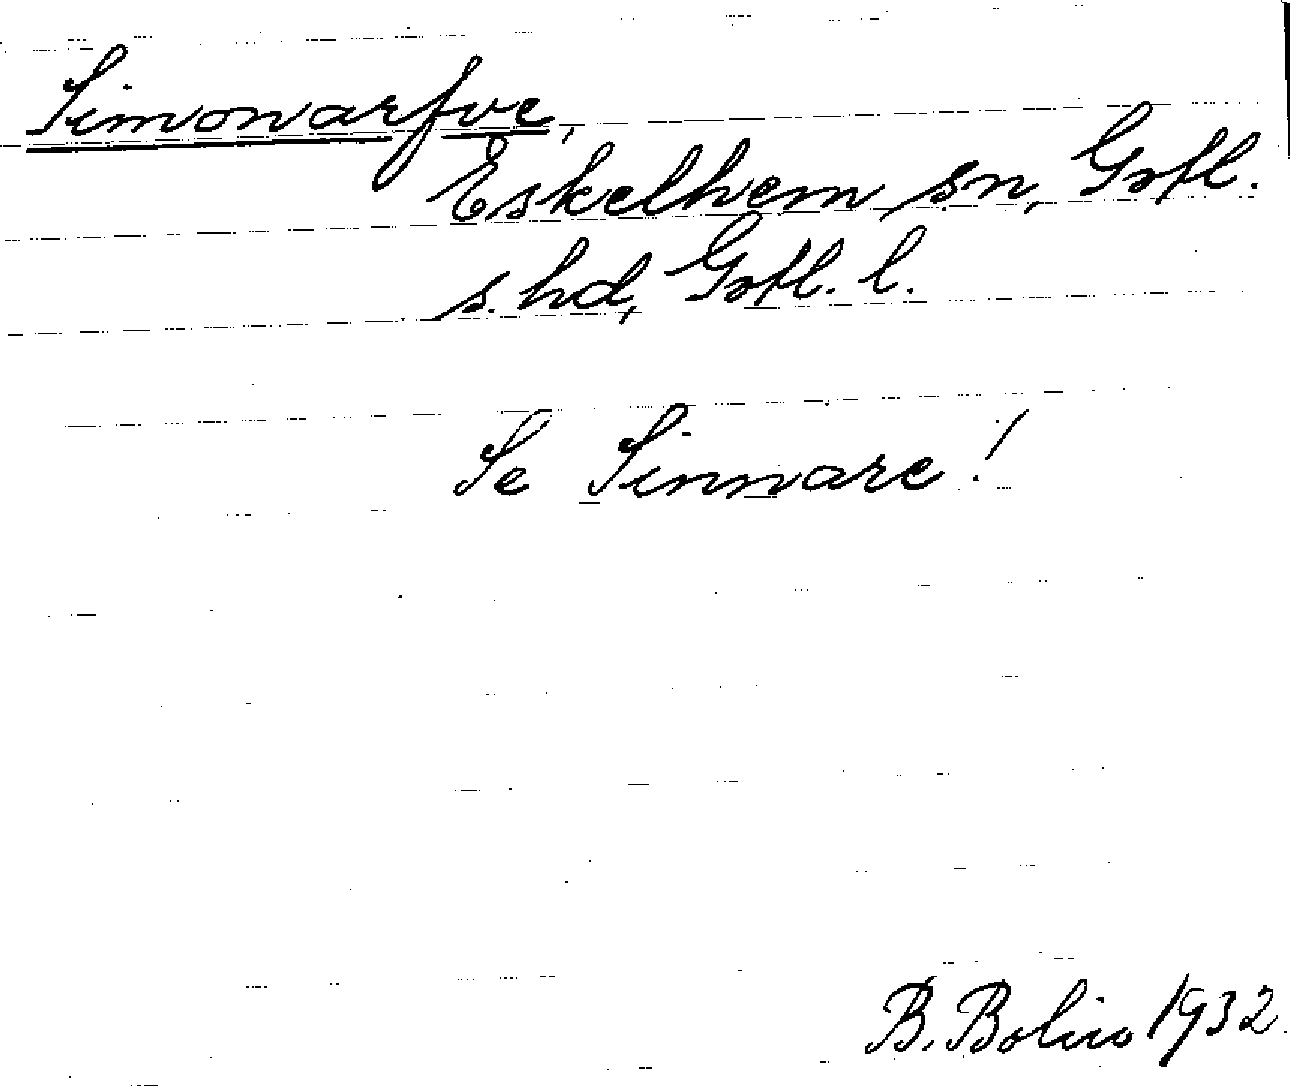 Simonarfve,
Eskelhem sn, Gotl.
s. hd, Gotl. l.
Se Sinnare!
B. Bolin 1932.